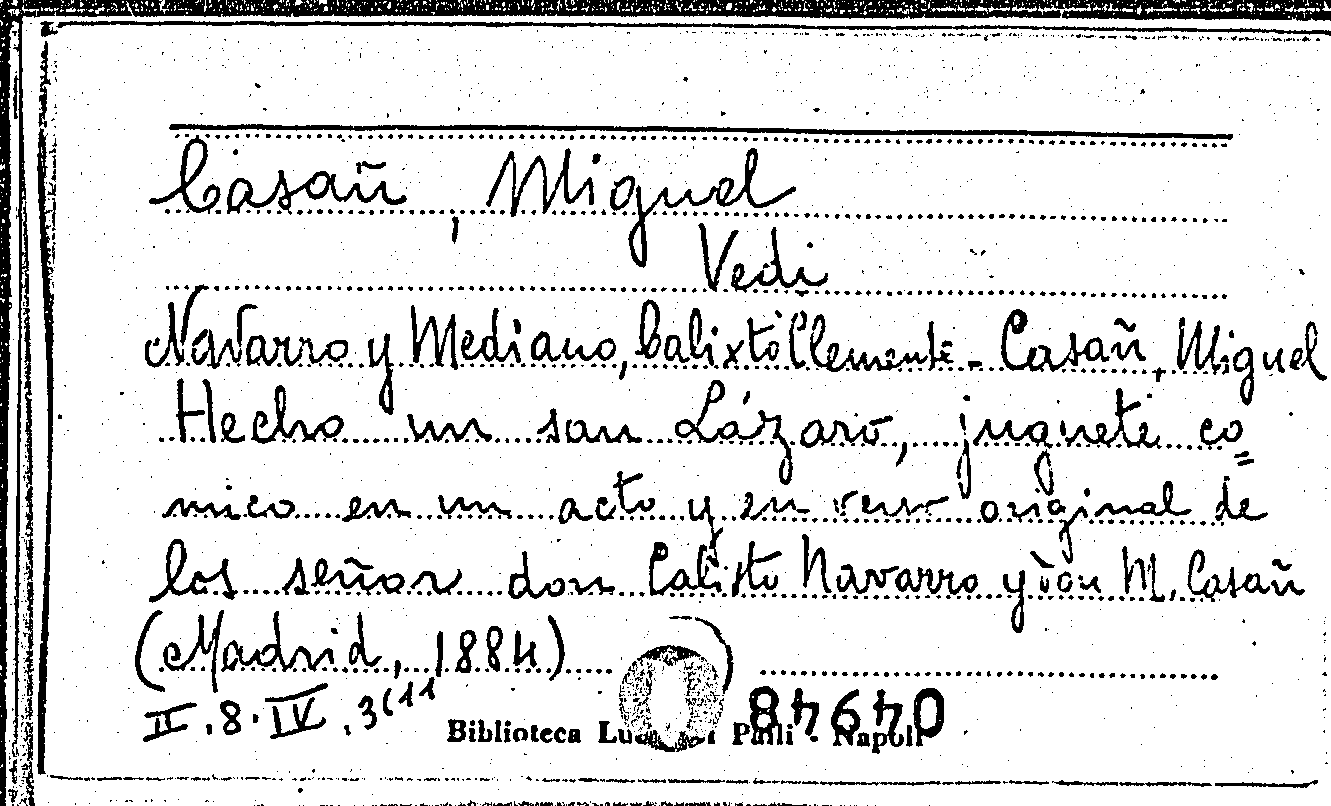 Casañ, Miguel
Vedi
Navarro y Mediano, Calixto Clemente - Casañ, Miguel
Hecho un san Lázaro, juguete co=
mico en un acto y en verso original de
los señor don Calisto Navarro y don M. Casañ
(Madrid, 1884)
II.8.IV.3(11
Biblioteca Lucchesi Palli - Napoli
04948